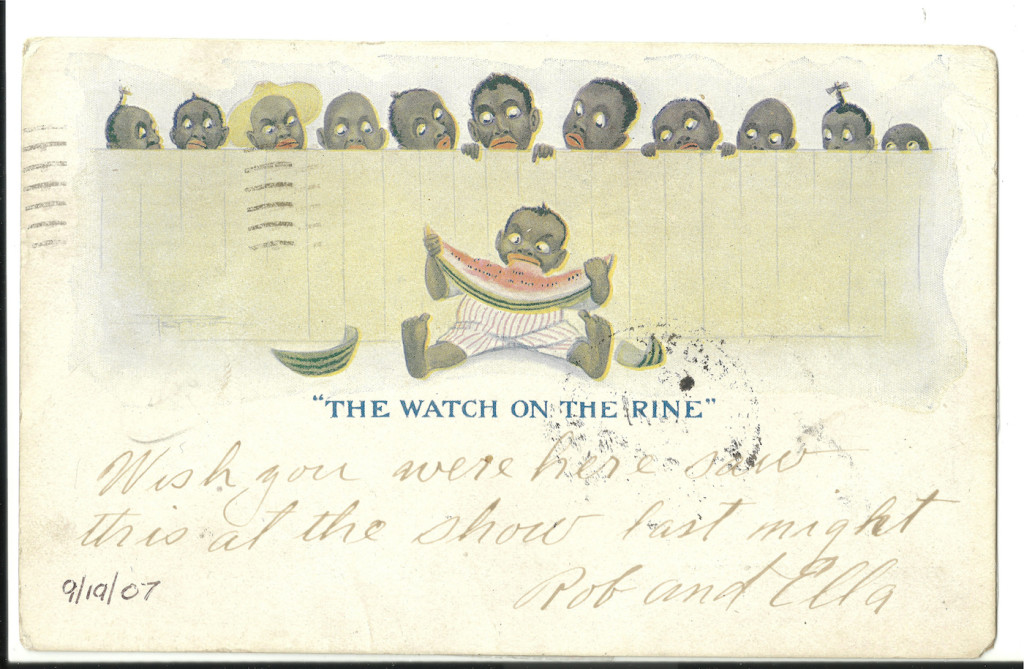 "THE WATCH ON THE RINE"
Wish you were here saw
this at the show last night
Rob and Ella
9/19/07